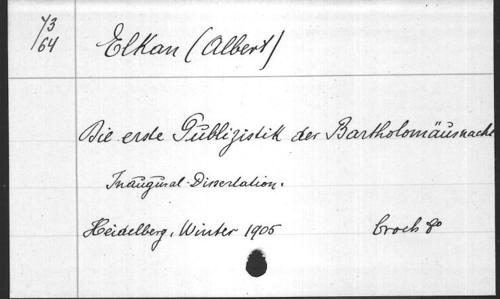 73
64
Elkan (Albert)
Die erste Publizistik der Bartholomäusnacht
Inaugural-Dissertation.
Heidelberg, Winter 1905 broch 8°